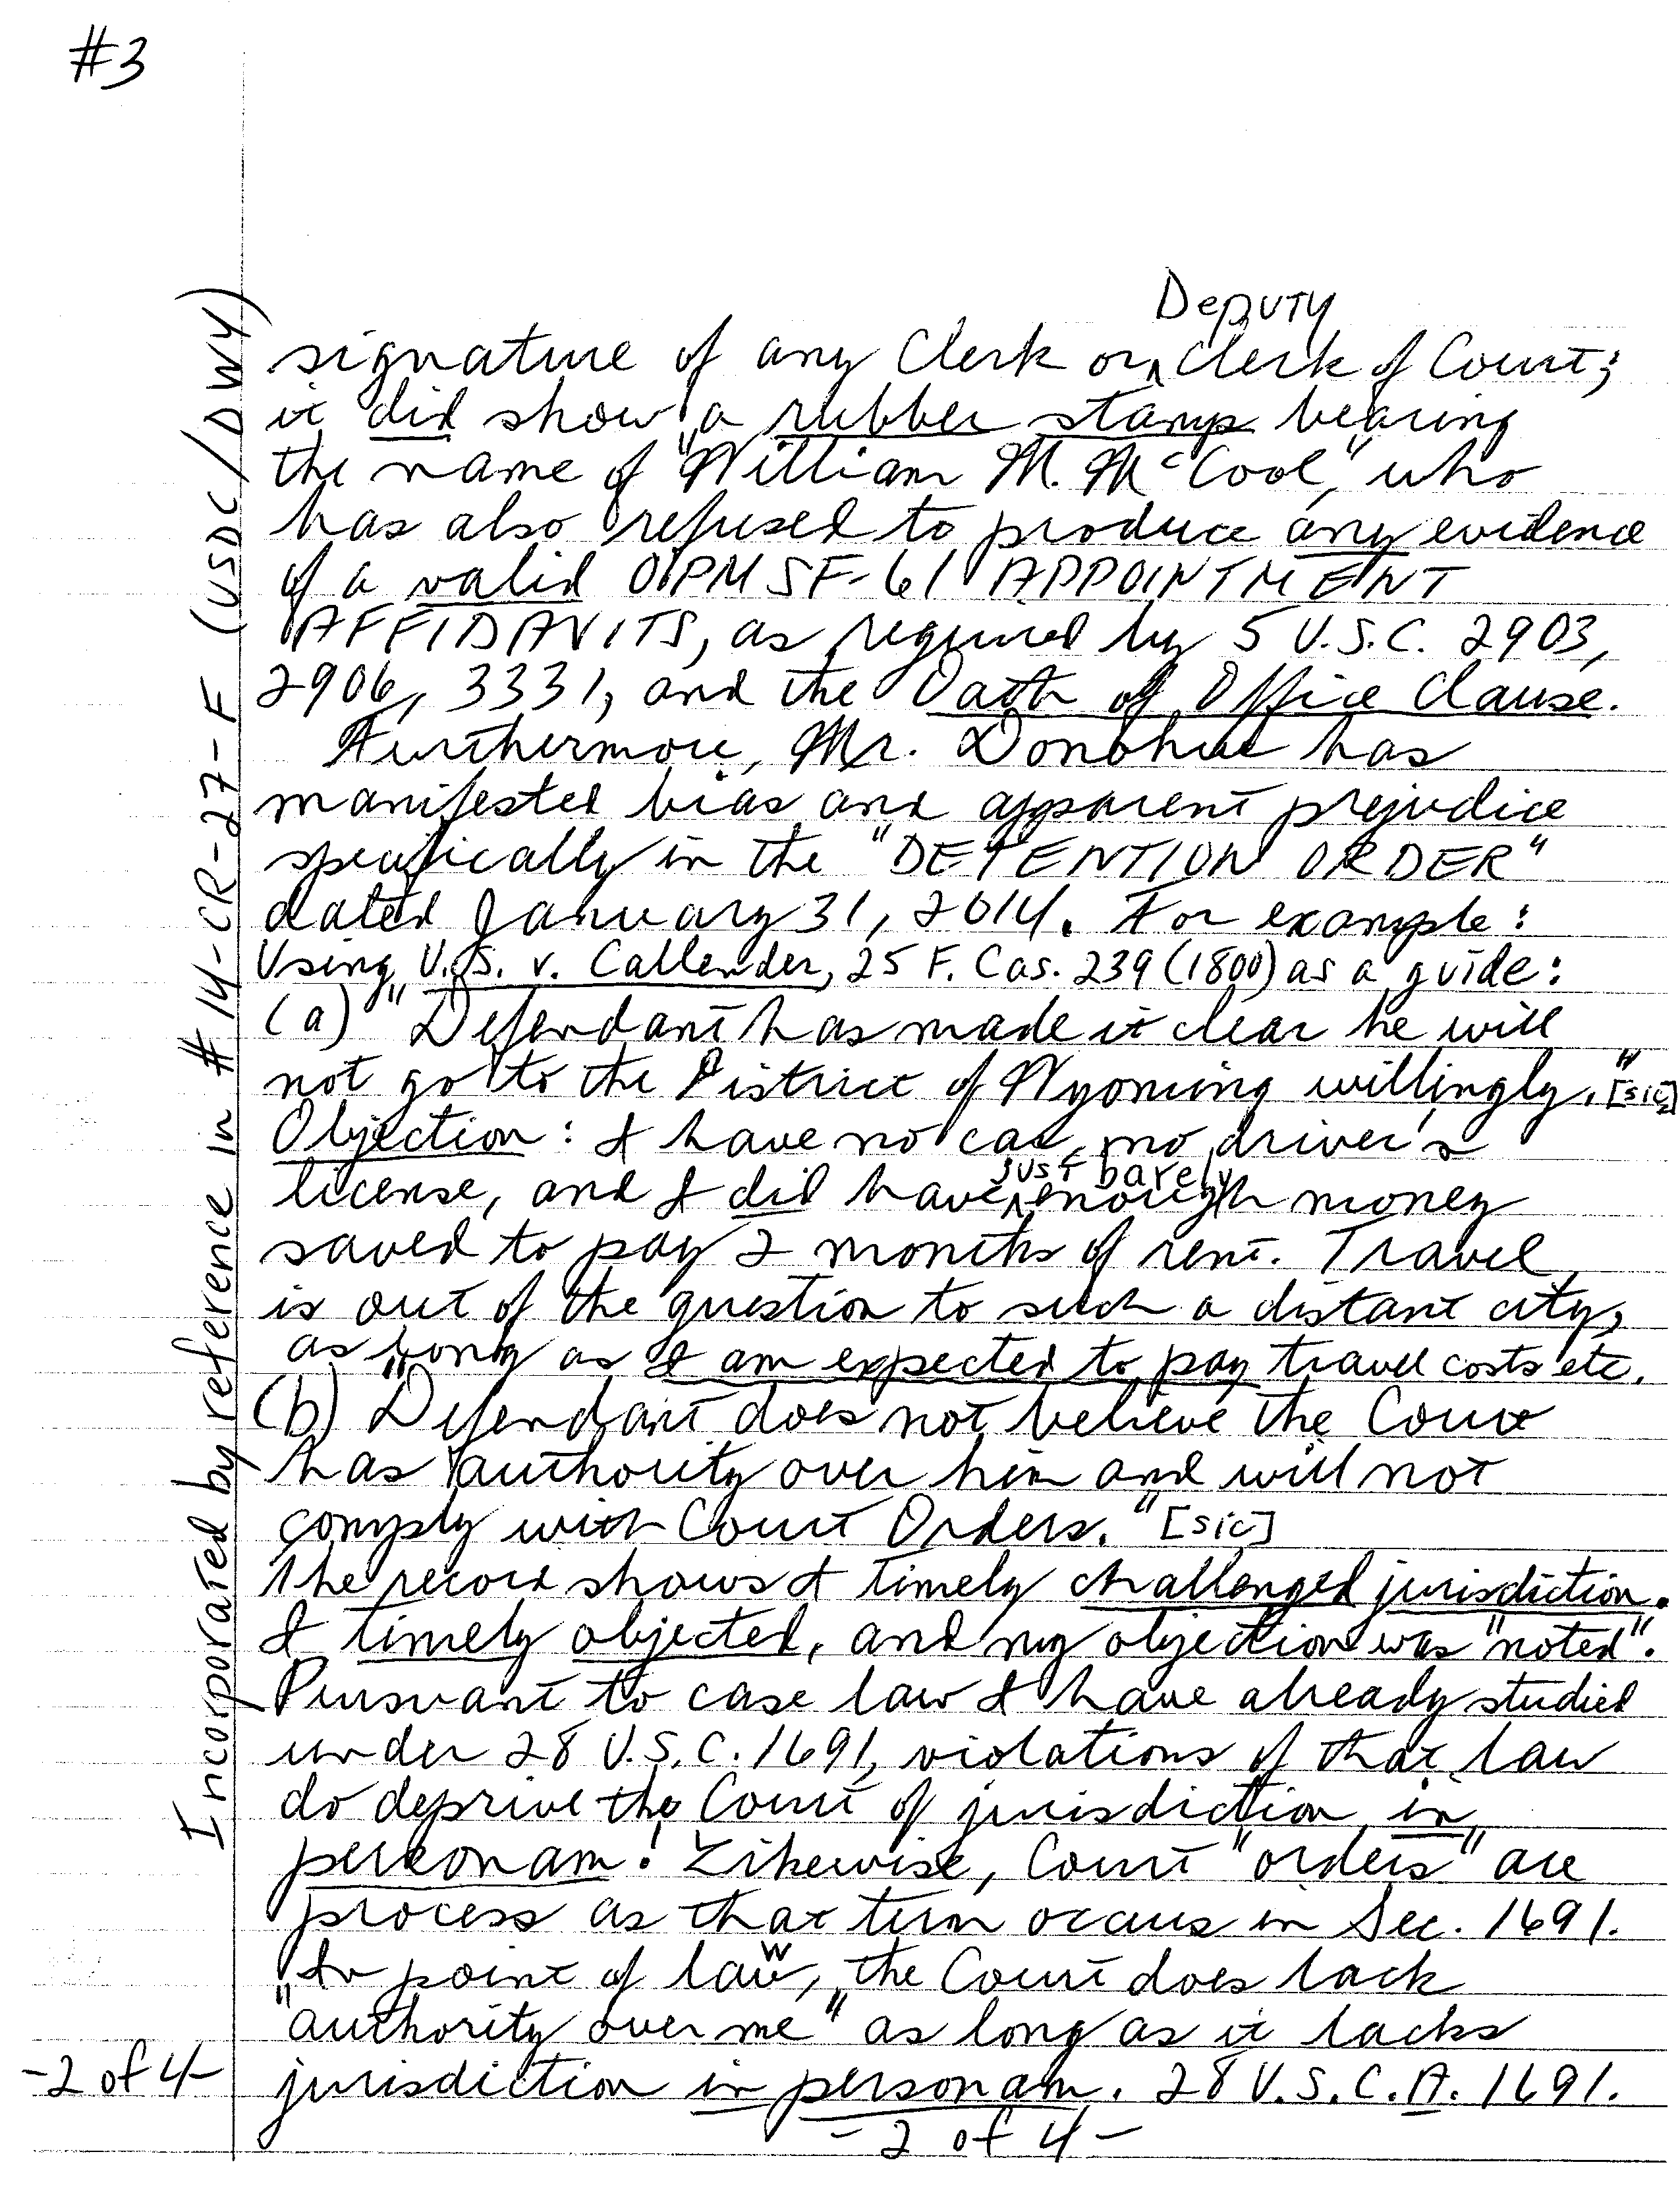 #3
Incorporated by reference in # 14-CR-27-F (USDC/DWY)
Deputy
signature of any Clerk or ^ Clerk of Court;
it did show a rubber stamp bearing
the name of "William M. McCool", who
has also refused to produce any evidence
of a valid OPM SF-61 APPOINTMENT
AFFIDAVITS, as required by 5 U.S.C. 2903,
2906, 3331, and the Oath of Office Clause.
Furthermore, Mr. Donohue has
manifested bias and apparent prejudice
specifically in the "DETENTION ORDER"
dated January 31, 2014. For example:
Using U.S. v. Callender, 25 F. Cas. 239 (1800) as a guide:
(a) "Defendant has made it clear he will
not go to the District of Wyoming willingly." [sic]
Objection: I have no car, no driver's
just barely
license, and I did have ^ enough money
saved to pay 2 months of rent. Travel
is out of the question to such a distant city,
as long as I am expected to pay travel costs etc.
(b) "Defendant does not believe the Court
has authority over him and will not
comply with Court Orders." [sic]
The record shows I timely challenged jurisdiction.
I timely objected, and my objection was "noted".
Pursuant to case law I have already studied
under 28 U.S.C. 1691, violations of that law
do deprive the Court of jurisdiction in
personam! Likewise, Court "orders" are
process as that term occurs in Sec. 1691.
In point of law, the Court does lack
"authority over me" as long as it lacks
jurisdiction in personam. 28 U.S.C.A. 1691.
-2 of 4-
-2 of 4-